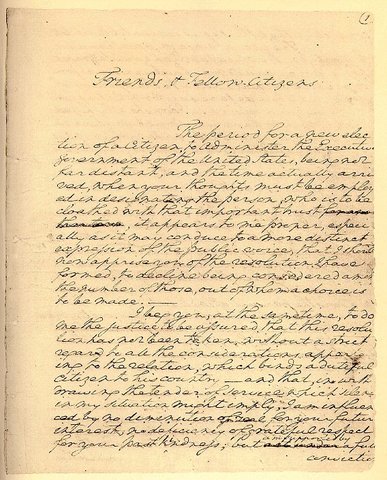 1
Friends, & Fellow-Citizens
The period for a new elec
tion of a Citizen, to administer the Executive
government of the United States, being not
far distant, and the time actually arri
ved, when your thoughts must be employ
ed in designating the person, who is to be
cloathed with that important trust
, it appears to me proper, especi
ally as it may conduce to a more distinct
expression of the public voice, that I should
now apprise you of the resolution I have
formed, to decline being considered among
the number of those, out of whom a choice is
to be made.
I beg you, at the same time, to do
me the justice to be assured, that this resolu
tion has not been taken, without a strict
regard to all the considerations apper
ing to the relation, which binds a dutiful
Citizen to his country — and that, in with
drawing the tender of service which silence
in my situation might imply, I am influen
ced by no diminution of zeal for your future
interest, no deficiency of grateful respect
for your past kindness; but am supported by a full
convictio